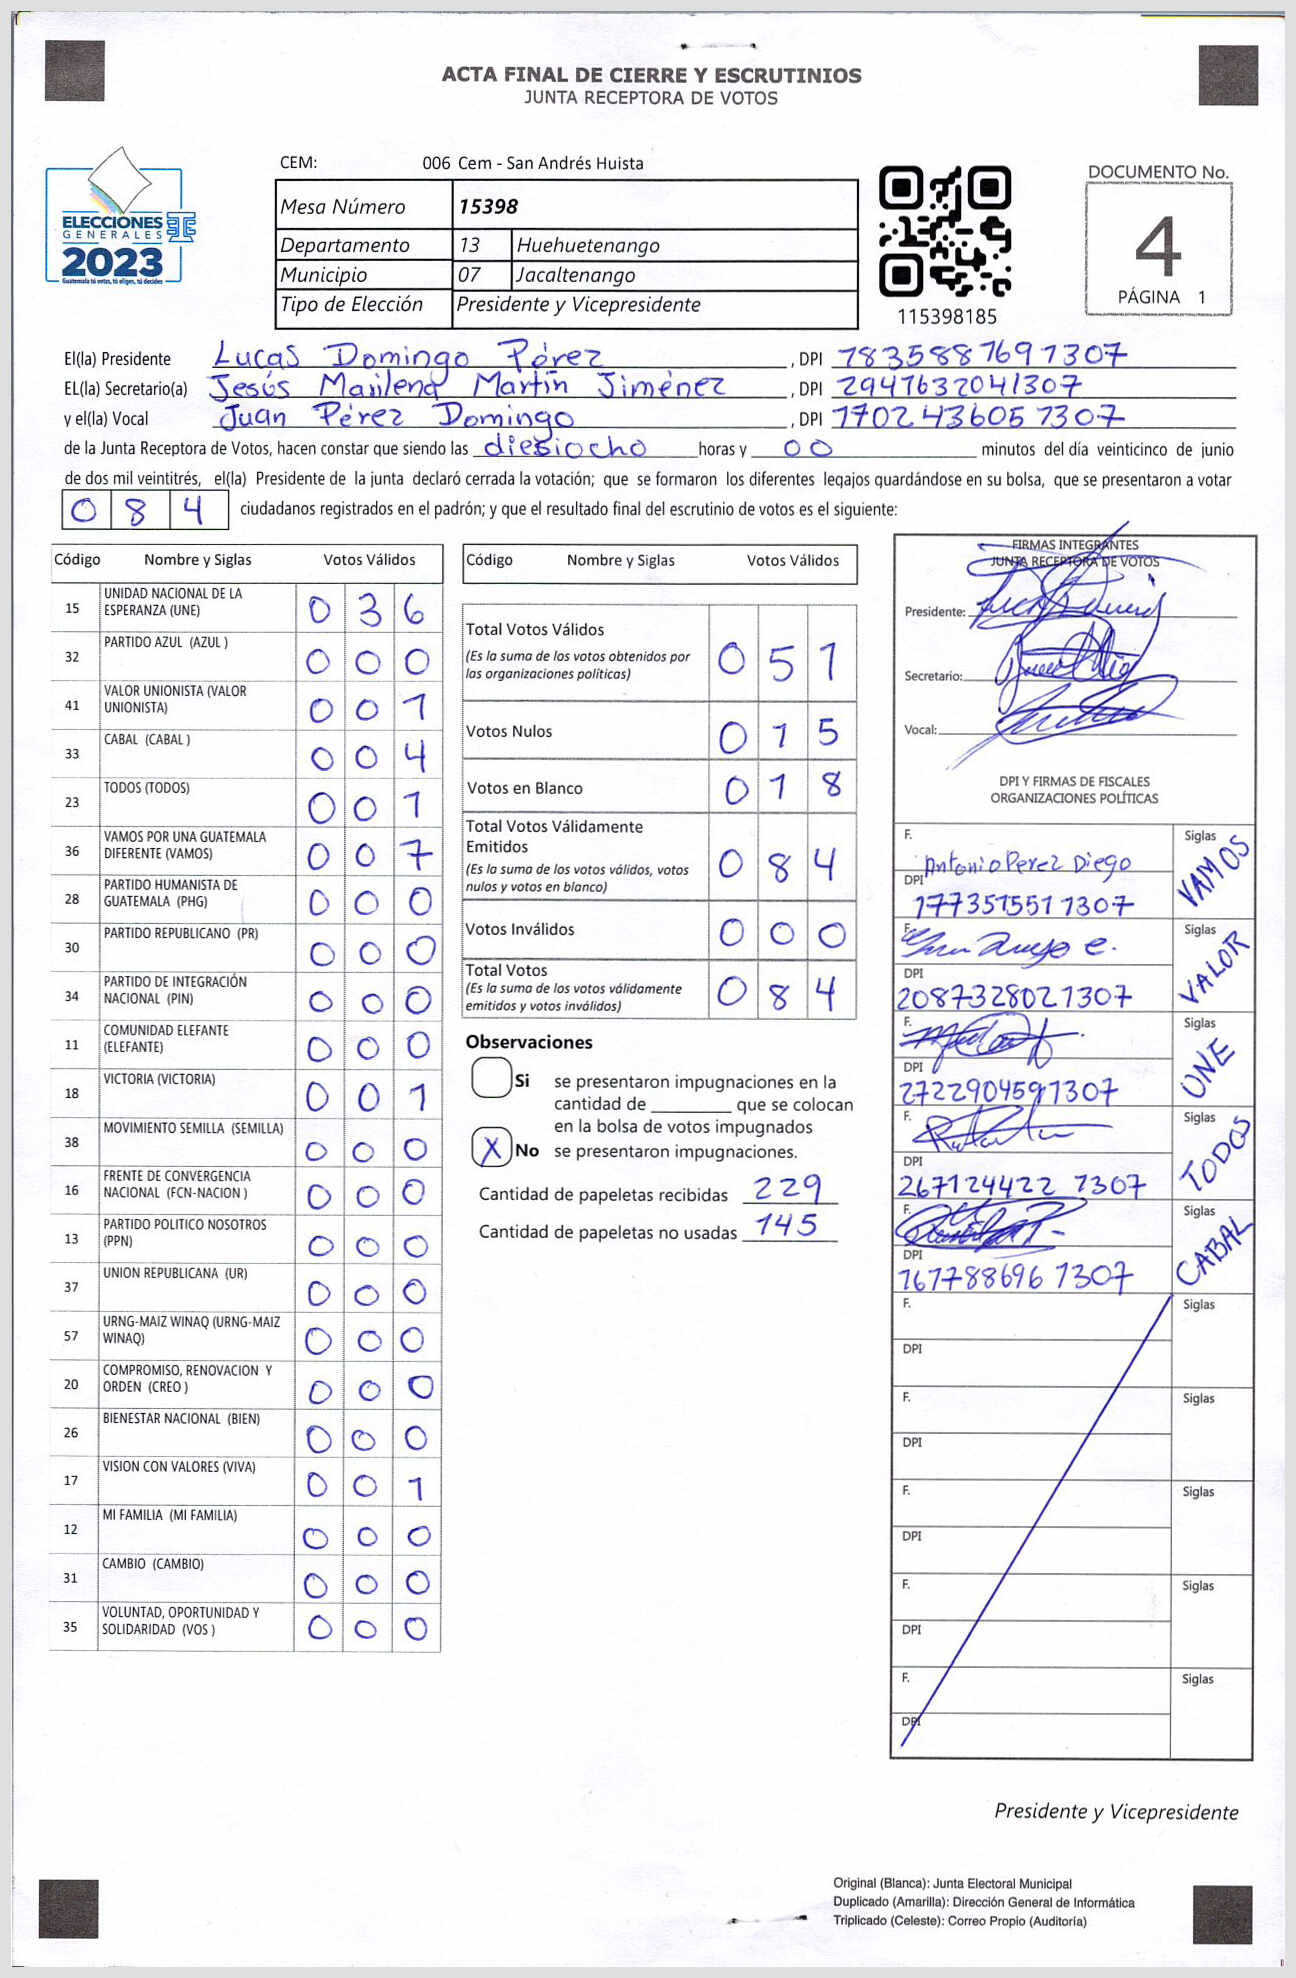 ACTA FINAL DE CIERRE Y ESCRUTINIOS
JUNTA RECEPTORA DE VOTOS
ELECCIONES
GENERALES
2023
Guatemala tú votas, tú eliges, tú decides
CEM: 006 Cem - San Andrés Huista
Mesa Número 15398
Departamento 13 Huehuetenango
Municipio 07 Jacaltenango
Tipo de Elección Presidente y Vicepresidente
115398185
DOCUMENTO No.
4
PÁGINA 1
El(la) Presidente Lucas Domingo Pérez, DPI 7835887697307
EL(la) Secretario(a) Jesús Marilena Martín Jiménez, DPI 2947632041307
y el(la) Vocal Juan Pérez Domingo, DPI 1702436057307
de la Junta Receptora de Votos, hacen constar que siendo las diesiocho horas y 00 minutos del día veinticinco de junio
de dos mil veintitrés, el(la) Presidente de la junta declaró cerrada la votación; que se formaron los diferentes legajos guardándose en su bolsa, que se presentaron a votar
084 ciudadanos registrados en el padrón; y que el resultado final del escrutinio de votos es el siguiente:
Código Nombre y Siglas Votos Válidos
15 UNIDAD NACIONAL DE LA ESPERANZA (UNE) 036
32 PARTIDO AZUL (AZUL ) 000
41 VALOR UNIONISTA (VALOR UNIONISTA) 001
33 CABAL (CABAL ) 004
23 TODOS (TODOS) 001
36 VAMOS POR UNA GUATEMALA DIFERENTE (VAMOS) 007
28 PARTIDO HUMANISTA DE GUATEMALA (PHG) 000
30 PARTIDO REPUBLICANO (PR) 000
34 PARTIDO DE INTEGRACIÓN NACIONAL (PIN) 000
11 COMUNIDAD ELEFANTE (ELEFANTE) 000
18 VICTORIA (VICTORIA) 001
38 MOVIMIENTO SEMILLA (SEMILLA) 000
16 FRENTE DE CONVERGENCIA NACIONAL (FCN-NACION ) 000
13 PARTIDO POLITICO NOSOTROS (PPN) 000
37 UNION REPUBLICANA (UR) 000
57 URNG-MAIZ WINAQ (URNG-MAIZ WINAQ) 000
20 COMPROMISO, RENOVACION Y ORDEN (CREO ) 000
26 BIENESTAR NACIONAL (BIEN) 000
17 VISION CON VALORES (VIVA) 001
12 MI FAMILIA (MI FAMILIA) 000
31 CAMBIO (CAMBIO) 000
35 VOLUNTAD, OPORTUNIDAD Y SOLIDARIDAD (VOS ) 000
Código Nombre y Siglas Votos Válidos
Total Votos Válidos 051
(Es la suma de los votos obtenidos por
las organizaciones políticas)
Votos Nulos 015
Votos en Blanco 018
Total Votos Válidamente
Emitidos 084
(Es la suma de los votos válidos, votos
nulos y votos en blanco)
Votos Inválidos 000
Total Votos 084
(Es la suma de los votos válidamente
emitidos y votos inválidos)
Observaciones
Si se presentaron impugnaciones en la
cantidad de ________ que se colocan
en la bolsa de votos impugnados
X No se presentaron impugnaciones.
Cantidad de papeletas recibidas 229
Cantidad de papeletas no usadas 145
FIRMAS INTEGRANTES
JUNTA RECEPTORA DE VOTOS
Presidente:
Secretario:
Vocal:
DPI Y FIRMAS DE FISCALES
ORGANIZACIONES POLÍTICAS
F. Antonio Perez Diego Siglas VAMOS
DPI 1773515511307
F. Siglas VALOR
DPI 2087328021307
F. Siglas UNE
DPI 2722904591307
F. Siglas TODOS
DPI 267124422 1307
F. Siglas CABAL
DPI 167788696 1307
F. Siglas
DPI
F. Siglas
DPI
F. Siglas
DPI
F. Siglas
DPI
F. Siglas
DPI
Presidente y Vicepresidente
Original (Blanca): Junta Electoral Municipal
Duplicado (Amarilla): Dirección General de Informática
Triplicado (Celeste): Correo Propio (Auditoría)